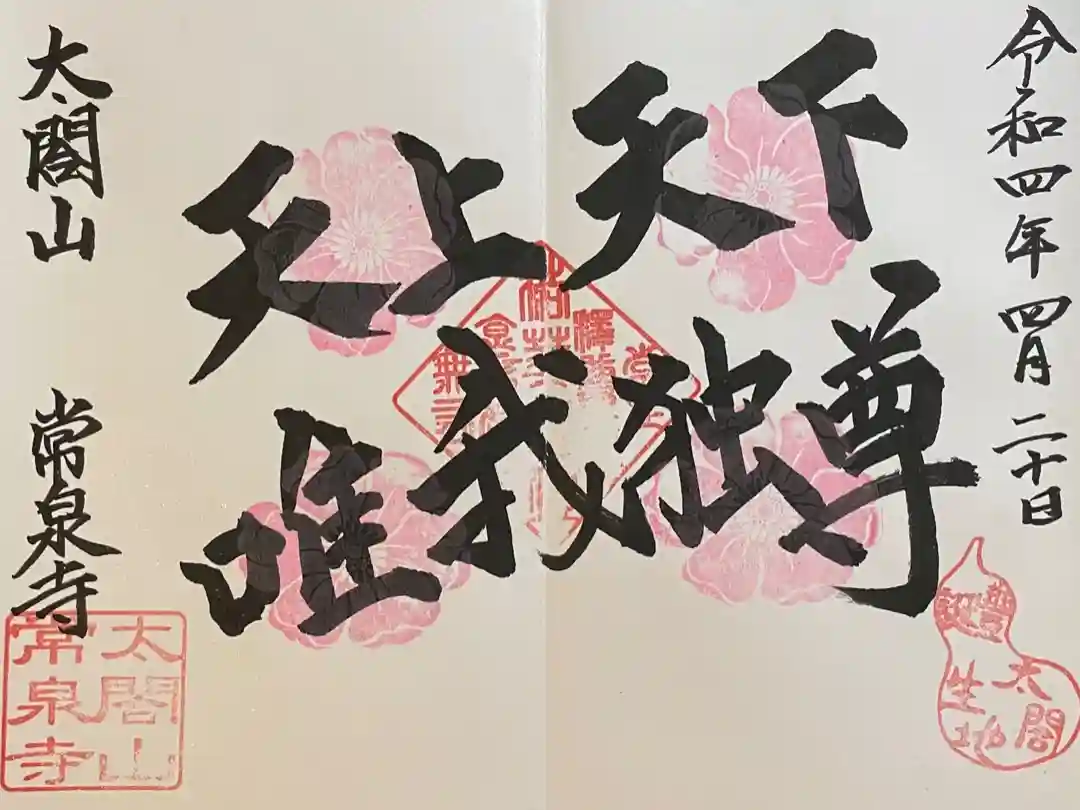 令和四年四月二十日
天上天下
唯我独尊
太閤山
常泉寺
豊公
誕生地
太閤
太閤山
常泉寺